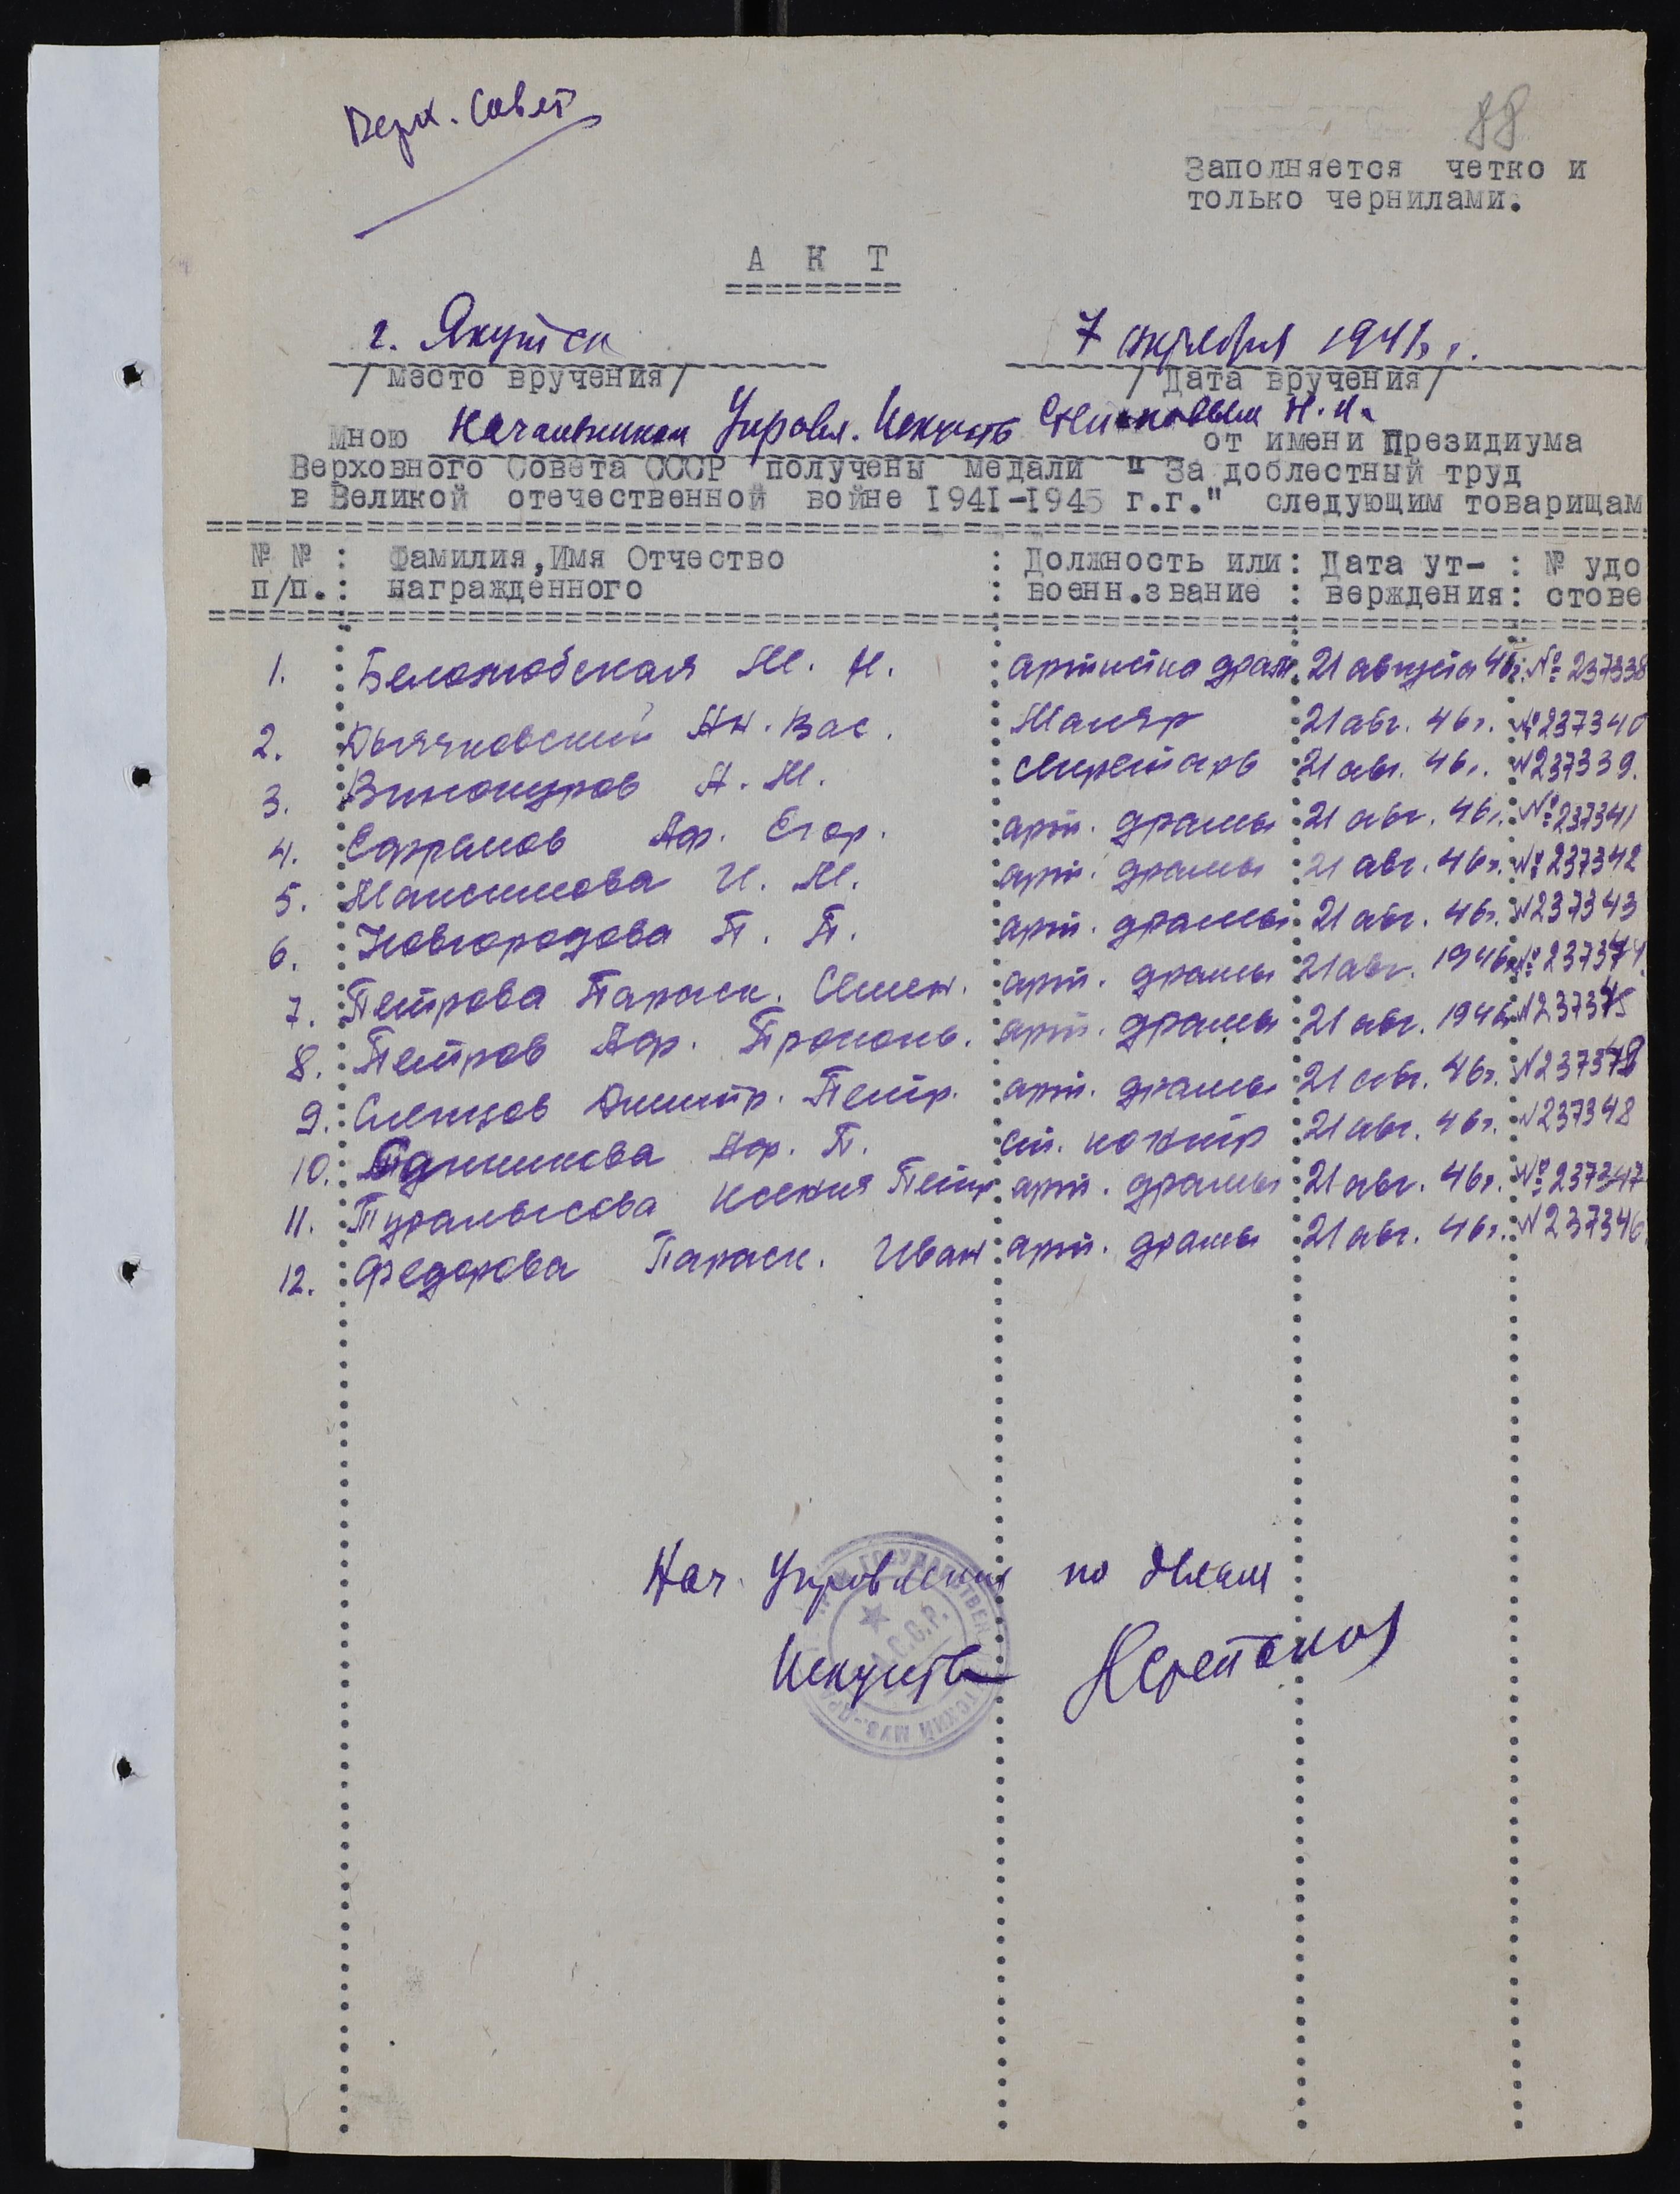 Верх. Совет
88
Заполняется четко и
только чернилами.
А К Т
г. Якутск 7 октября 194
/место вручения/ /Дата вручения/
Мною Начальником Управл. Искусств Степановым Н. И. от имени Президиума
Верховного Совета СССР получены медали "За доблестный труд
в Великой отечественной войне 1941-1945 г.г." следующим товарищам
№ № : Фамилия, Имя Отчество : Должность или : Дата ут- : № удо
п/п. : награжденного : военн.звание : верждения : стове
1. Беломобская М. Н. артистка драм. 21 августа 46г. № 237338
2. Дьячковский Ин. Вас. Маляр 21 авг. 46г. № 237340
3. Винокуров А. М. секретарь 21 авг. 46г. № 237339.
4. Ефремов Аф. Егор. арт. драмы 21 авг. 46г. № 237341
5. Максимова И. М. арт. драмы 21 авг. 46г. № 237342
6. Новгородова П. П. арт. драмы 21 авг. 46г. № 237343
7. Петрова Параск. Семен. арт. драмы 21 авг. 1946г. № 237344.
8. Петров Аф. Прокопь. арт. драмы 21 авг. 1946г. № 237345
9. Слепцов Дмитр. Петр. арт. драмы 21 авг. 46г. №
10. Аф. П. 21 авг. 46г. № 237348
11. Туралысова Ксения Петр. арт. драмы 21 авг. 46г. № 237347
12. Федорова Параск. Иван арт. драмы 21 авг. 46г. № 237346
Нач. Управления по делам
Искусств НСтепанов